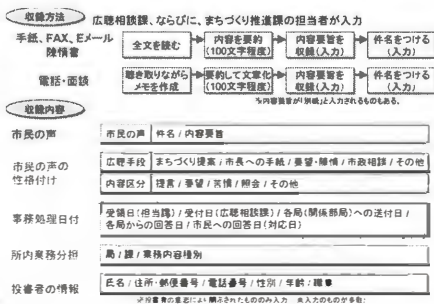 収録方法
広聴相談課、ならびに、まちづくり推進課の担当者が入力
手紙、FAX、Eメール
陳情書
全文を読む
内容を要約
(100文字程度)
内容要旨を
収録(入力)
件名をつける
(入力)
電話・面談
聴き取りながら
メモを作成
要約して文章化
(100文字程度)
内容要旨を
収録(入力)
件名をつける
(入力)
※内容要旨が「別紙」と入力されるものもある。
収録内容
市民の声
市民の声 件名 / 内容要旨
市民の声の
性格付け
広聴手段 まちづくり提案 / 市長への手紙 / 要望・陳情 / 市政相談 / その他
内容区分 提言 / 要望 / 苦情 / 照会 / その他
事務処理日付
受領日(担当課) / 受付日(広聴相談課) / 各局(関係部局)への送付日 /
各局からの回答日 / 市民への回答日(対応日)
所内業務分担
局 / 課 / 業務内容種別
投書者の情報
氏名 / 住所・郵便番号 / 電話番号 / 性別 / 年齢 / 職業
※投書者の意志により開示されたもののみ入力 未入力のものが多数